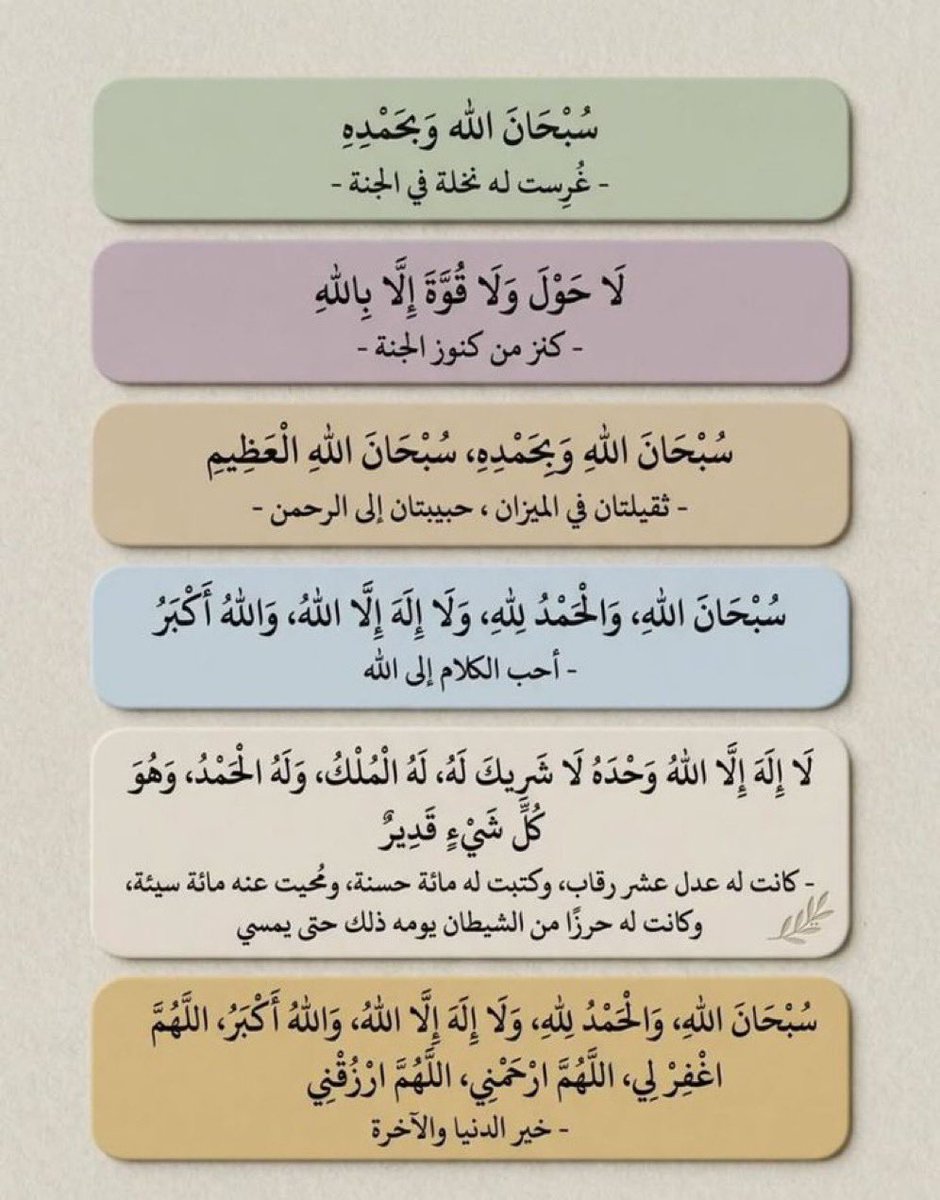 سُبْحَانَ الله وَبِحَمْدِهِ
- غُرِست له نخلة في الجنة -
لَا حَوْلَ وَلَا قُوَّةَ إِلَّا بِاللهِ
- كنز من كنوز الجنة -
سُبْحَانَ اللهِ وَبِحَمْدِهِ، سُبْحَانَ اللهِ الْعَظِيمِ
- ثقيلتان في الميزان ، حبيبتان إلى الرحمن -
سُبْحَانَ اللهِ، وَالْحَمْدُ لِلهِ، وَلَا إِلَهَ إِلَّا اللهُ، وَاللهُ أَكْبَرُ
- أحب الكلام إلى الله
لَا إِلَهَ إِلَّا اللهُ وَحْدَهُ لَا شَرِيكَ لَهُ، لَهُ الْمُلْكُ، وَلَهُ الْحَمْدُ، وَهُوَ
كُلِّ شَيْءٍ قَدِيرٌ
- كانت له عدل عشر رقاب، وكتبت له مائة حسنة، ومُحيت عنه مائة سيئة،
وكانت له حرزًا من الشيطان يومه ذلك حتى يمسي
سُبْحَانَ اللهِ، وَالْحَمْدُ لِلهِ، وَلَا إِلَهَ إِلَّا اللهُ، وَاللهُ أَكْبَرُ، اللَّهُمَّ
اغْفِرْ لِي، اللَّهُمَّ ارْحَمْنِي، اللَّهُمَّ ارْزُقْنِي
- خير الدنيا والآخرة